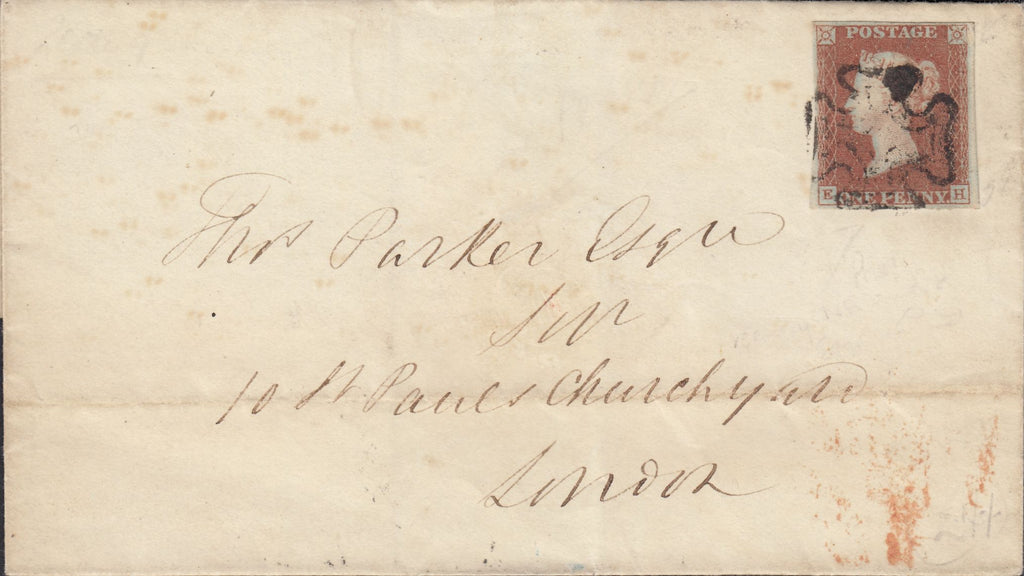 POSTAGE
E ONE PENNY H
Thos Parker Esqre
10 St Pauls Churchyard
London